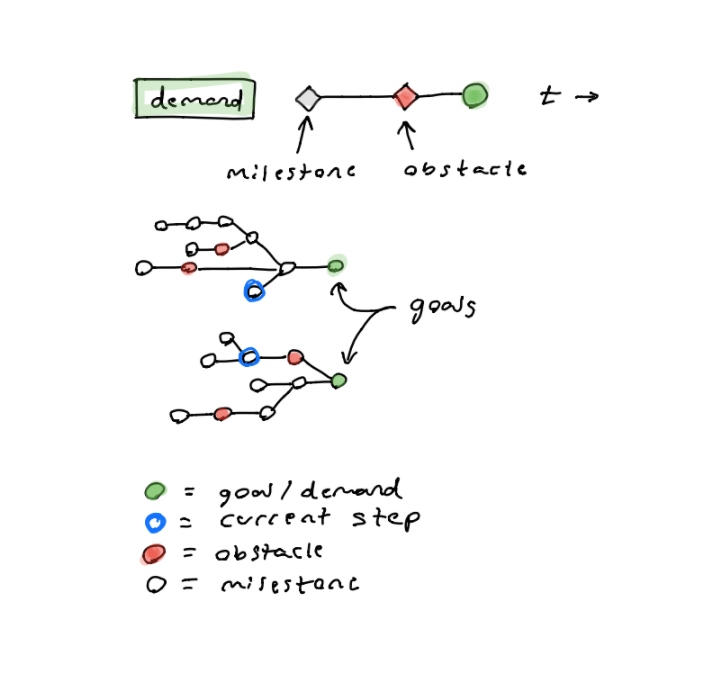 demand
t →
milestone
obstacle
goals
= goal/demand
= current step
= obstacle
= milestone